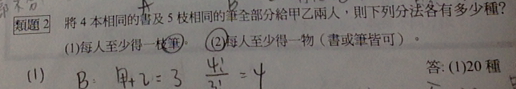 類題 2 將 4 本相同的書及 5 枝相同的筆全部分給甲乙兩人，則下列分法各有多少種？
(1)每人至少得一枝筆。 (2)每人至少得一物（書或筆皆可）。
答：(1)20 種
(1) B: 甲+乙=3 4!/3! = 4